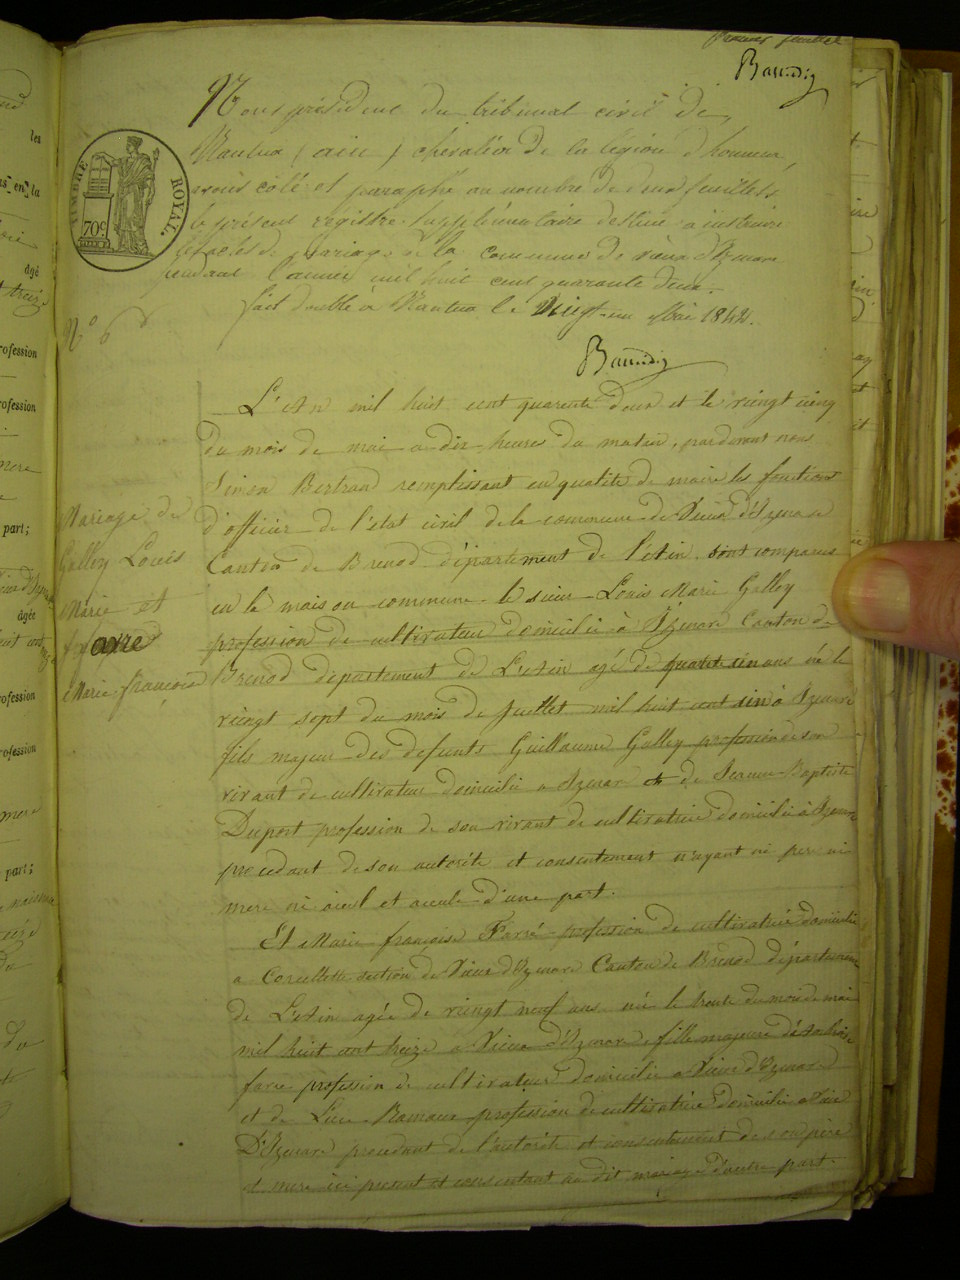 Premier feuillet
Baudin
Nous président du tribunal civil de
Nantua (ain) chevalier de la légion d'honneur,
avons coté et paraphé au nombre de deux feuillets
le présent registre supplémentaire destiné a inscrire
les actes de mariage de la commune de vieux d'Izenave
pendant l'année mil huit cent quarante deux.
fait double a Nantua le vingt un Mai 1842.
Baudin
TIMBRE ROYAL
70c
N° 6
Mariage de
Galley Louis
Marie et
favre
Marie françoise
L'An mil huit cent quarente deux et le vingt cinq
du mois de mai a dix heures du matin, pardevant nous
Simon Bertrand remplissant en qualité de maire les fonctions
d'officier de l'état civil de la commune de Vieux d'Izenave
Canton de Brenod département de l'Ain. sont comparus
en la maison commune le sieur Louis Marie Galley
profession de cultivateur domicilié à Izenave Canton de
Brenod département de L'Ain agé de ans né le
vingt sept du mois de Juillet mil huit cent cinq a Izenave
fils majeur des defunts Guillaume Galley profession de son
vivant de cultivateur domicilié a Izenave et de Baptiste
Duport profession de son vivant de cultivatrice domicilié à Izenave
procedant de son autorité et consentement n'ayant ni pere ni
mere ni aieul et aieule d'une part.
Et Marie françoise Favre profession de cultivatrice domicilié
a Corcellette section de Vieux d'Izenave Canton de Brenod département
de L'Ain agée de vingt neuf ans. née le trente du mois de mai
mil huit cent treize a Vieux d'Izenave fille majeure de
favre profession de cultivateur domicilié a Vieux d'Izenave
et de profession de cultivatrice domicilié a Vieux
D'Izenave procedant de l'autorité et consentement de son père
et mere ici present et consentant au dit mariage d'autre part.